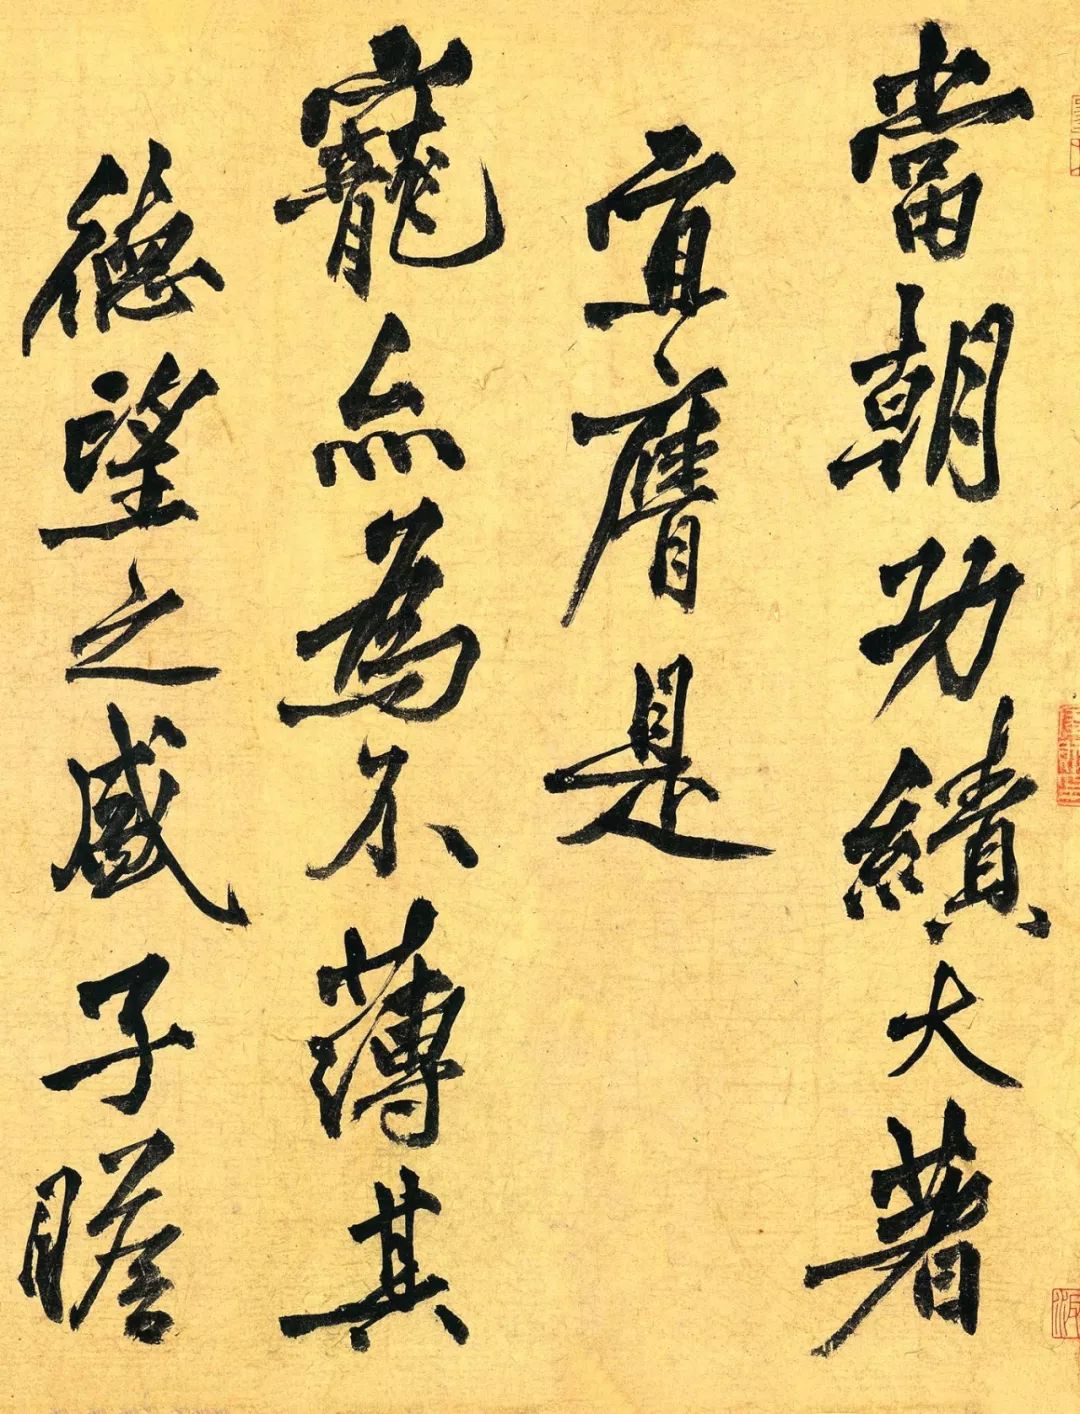 當朝功績大著
宜膺是
寵亦為不薄其
德望之盛子瞻